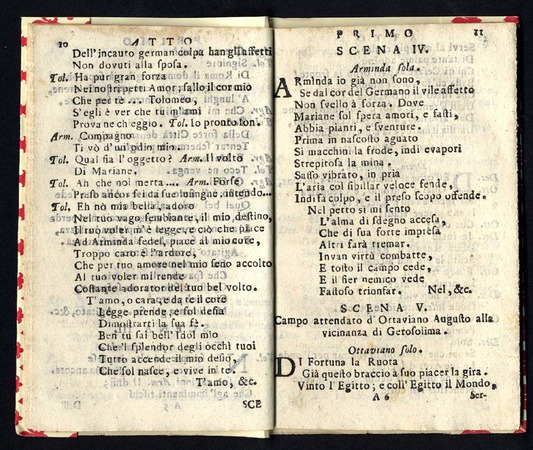 10 ATTO
Dell'incauto german colpa han gli affetti
Non dovuti alla sposa.
Tol. Ha pur gran forza
Nei nostri petti Amor; fallo il cor mio
Che per te .... Tolomeo,
S'egli è ver che tu m'ami
Prova ne chieggio. Tol. Io pronto son.
Arm. Compagno
Ti vò d'un odio mio.
Tol. Qual fia l'oggetto? Arm. Il volto
Di Mariane.
Tol. Ah che nol merta .... Arm. Forse
Preso ancor sei da sue lusinghe intendo...
Tol. Eh nò mia bella, adoro
Nel tuo vago sembiante, il mio destino,
Il tuo voler m'è legge, e ciò che piace
Ad Arminda fedel, piace al mio core,
Troppo caro è l'ardore,
Che per tuo amore nel mio seno accolto
Al tuo voler mi rende
Costante adorator del tuo bel volto.
T'amo, o cara, e da te il core
Legge prende, e sol desia
Dimostrarti la sua fè.
Ben tu sai bell'Idol mio
Che'l splendor degli occhi tuoi
Tutto accende il mio desio,
Che sol nasce, e vive in te.
T'amo, &c.
SCE
PRIMO 11
SCENA IV.
Arminda sola.
ARminda io già non sono,
Se dal cor del Germano il vile affetto
Non svello à forza. Dove
Mariane sol spera amori, e fasti,
Abbia pianti, e sventure.
Prima in nascosto aguato
Si macchini la frode, indi evapori
Strepitosa la mina.
Sasso vibrato, in pria
L'aria col sibillar veloce fende,
Indi fa colpo, e il preso scopo offende.
Nel petto si mi sento
L'alma di sdegno accesa,
Che di sua forte impresa
Altri farà tremar.
Invan virtù combatte,
E tosto il campo cede,
E il fier nemico vede
Fastoso trionfar. Nel, &c.
SCENA V.
Campo attendato d'Ottaviano Augusto alla
vicinanza di Gerosolima.
Ottaviano solo.
DI Fortuna la Ruota
Già questo braccio à suo piacer la gira.
Vinto l'Egitto; e coll'Egitto il Mondo,
A 6 Ser-